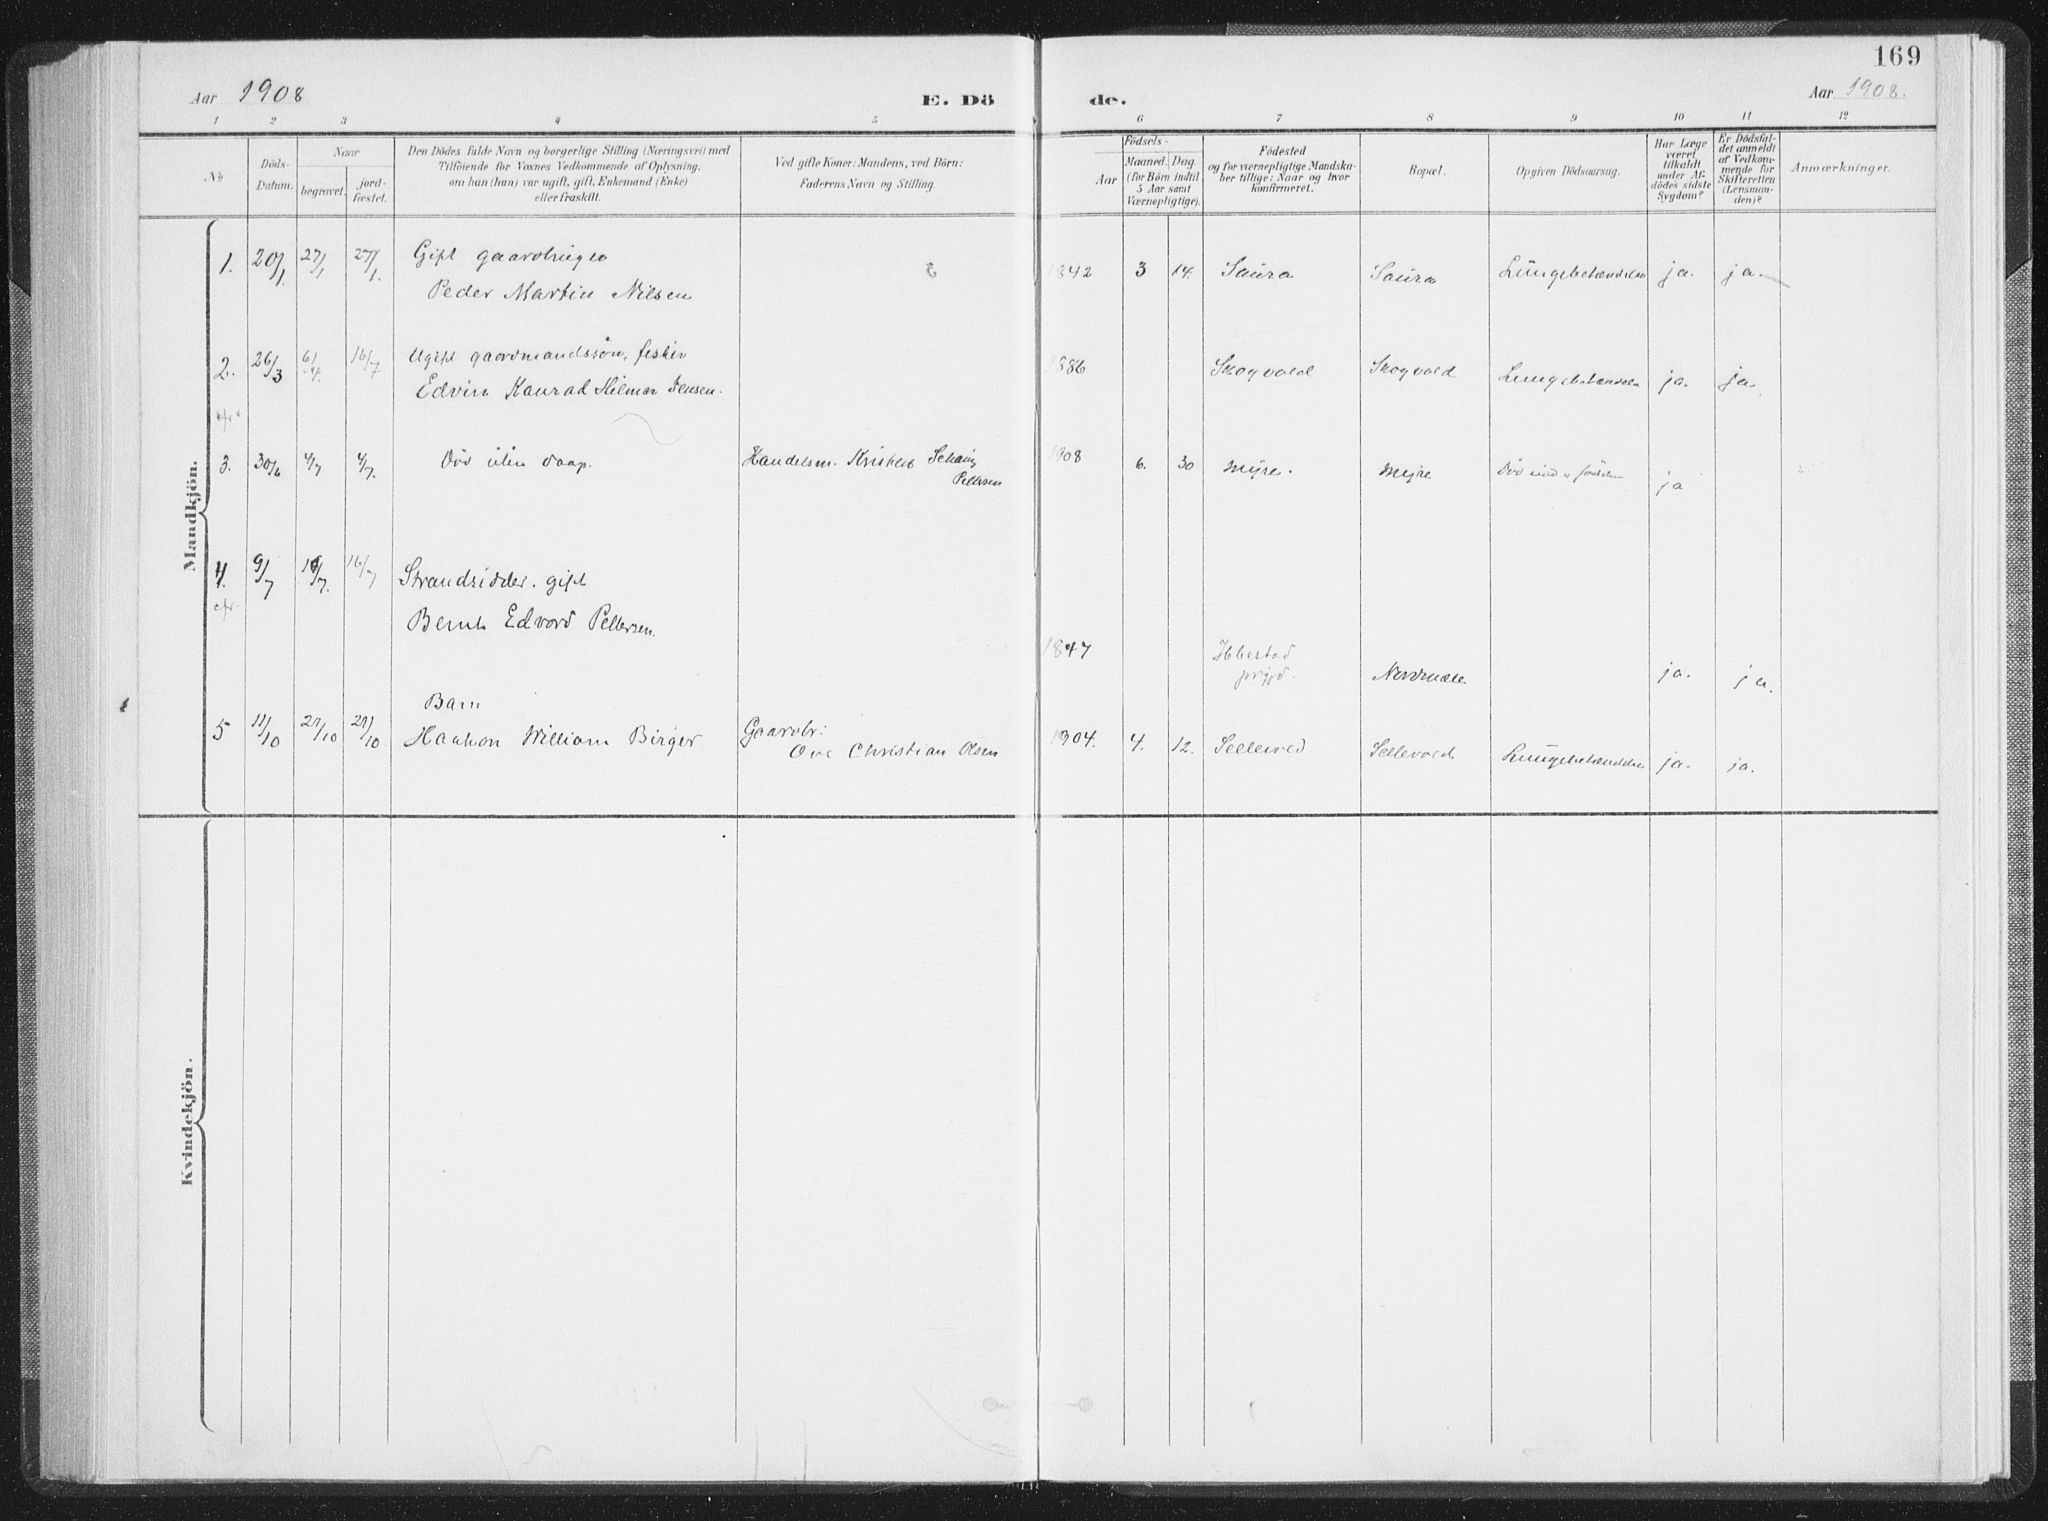 169
Aar 1908
E. Dö
de.
Aar 1908.
1 2 3 4 5 6 7 8 9 10 11 12
No
Döds-
Datum.
Naar
begravet.
jord-
fæstet.
Den Dödes fulde Navn og borgerlige Stilling (Næringsvei) med
Tilföiende for Voxnes Vedkommende af Oplysning,
om han (hun) var ugift, gift, Enkemand (Enke)
eller fraskilt.
Ved gifte Koner: Mandens, ved Börn:
Faderens Navn og Stilling.
Födsels-
Aar
Maaned. Dag
(for Börn indtil
5 Aar samt
Værnepligtige).
Födested
og for værnepligtige Mandska-
ber tillige: Naar og hvor
Konfirmeret.
Bopæl.
Opgiven Dödsaarsag.
Har Læge
været
tilkaldt
under Af-
dödes sidste
Sygdom?
Er Dödsfal-
det anmeldt
af Vedkom-
mende for
Skifteretten
(Lensman-
den)?
Anmærkninger.
Mandkjön.
1. 20/1 27/1 27/1. Gift gaardbruger
Peder Martin Nilsen
1842 3 14. Saura Saura Lungebetændelse ja. ja.
2. 26/3 6/4. 16/7 Ugift gaardmandssön, fisker
Edvin Konrad Hilmar Jensen.
1886 Skogvold Skogvold Lungebetændelse ja. ja.
cfr
3. 30/6 4/7 4/7. Död uten daap. Handelsm. Kristen Schanz
Pettersen
1908 6. 30 Myre. Myre Död under födselen ja
4. 9/7 /7. 16/7 Strandsidder. gift
cfr.
Bernt Edvard Pettersen.
1847 Ibbestad
prgjd. ja. ja.
Barn
5 11/10 21/10 21/10 Haakon William Birger Gaardbr:
Ove Christian Olsen
1904. 4. 12. Sellevold Sellevold Lungebetændelse ja. ja.
Kvindekjön.